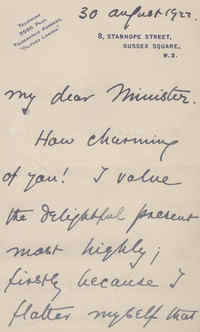 30 August 1922
TELEPHONE
TELEGRAPHIC ADDRESS,
8, STANHOPE STREET,
SUSSEX SQUARE,
W.2.
My dear Minister.
How charming
of you! I value
the delightful present
most highly;
firstly because I
flatter myself that